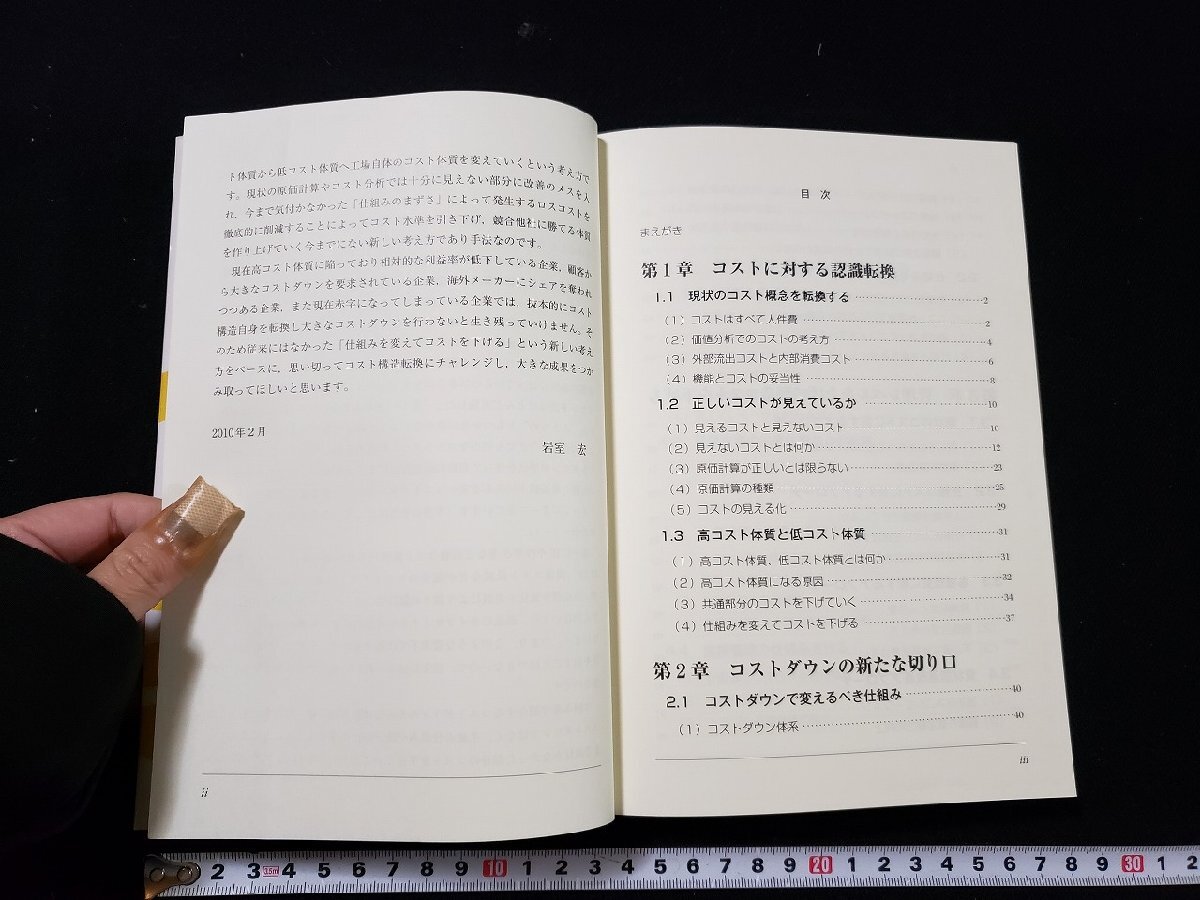 ト体質から低コスト体質へ工場自体のコスト体質を変えていくという考え方で
す。現状の原価計算やコスト分析では十分に見えない部分に改善のメスを入
れ、今まで気付かなかった「仕組みのまずさ」によって発生するロスコストを
徹底的に削減することによってコスト水準を引き下げ、競合他社に勝てる体質
を作り上げていく今までにない新しい考え方であり手法なのです。
現在高コスト体質に陥っており相対的な利益率が低下している企業，顧客か
ら大きなコストダウンを要求されている企業，海外メーカーにシェアを奪われ
つつある企業，また現在赤字になってしまっている企業では，抜本的にコスト
構造自身を転換し大きなコストダウンを行わないと生き残っていけません。そ
のため従来にはなかった「仕組みを変えてコストを下げる」という新しい考え
方をベースに，思い切ってコスト構造転換にチャレンジし，大きな成果をつか
み取ってほしいと思います。
2010年2月
岩室 宏
ii
目 次
まえがき
第1章 コストに対する認識転換
1.1 現状のコスト概念を転換する 2
(1) コストはすべて人件費 2
(2) 価値分析でのコストの考え方 4
(3) 外部流出コストと内部消費コスト 6
(4) 機能とコストの妥当性 8
1.2 正しいコストが見えているか 10
(1) 見えるコストと見えないコスト 10
(2) 見えないコストとは何か 12
(3) 原価計算が正しいとは限らない 23
(4) 原価計算の種類 25
(5) コストの見える化 29
1.3 高コスト体質と低コスト体質 31
(1) 高コスト体質、低コスト体質とは何か 31
(2) 高コスト体質になる原因 32
(3) 共通部分のコストを下げていく 34
(4) 仕組みを変えてコストを下げる 37
第2章 コストダウンの新たな切り口
2.1 コストダウンで変えるべき仕組み 40
(1) コストダウン体系 40
iii
2 3 3.5m 4 5 6 7 8 9 10 1 2 3 4 5 6 7 8 9 20 1 2 3 4 5 6 7 8 9 30 1 2